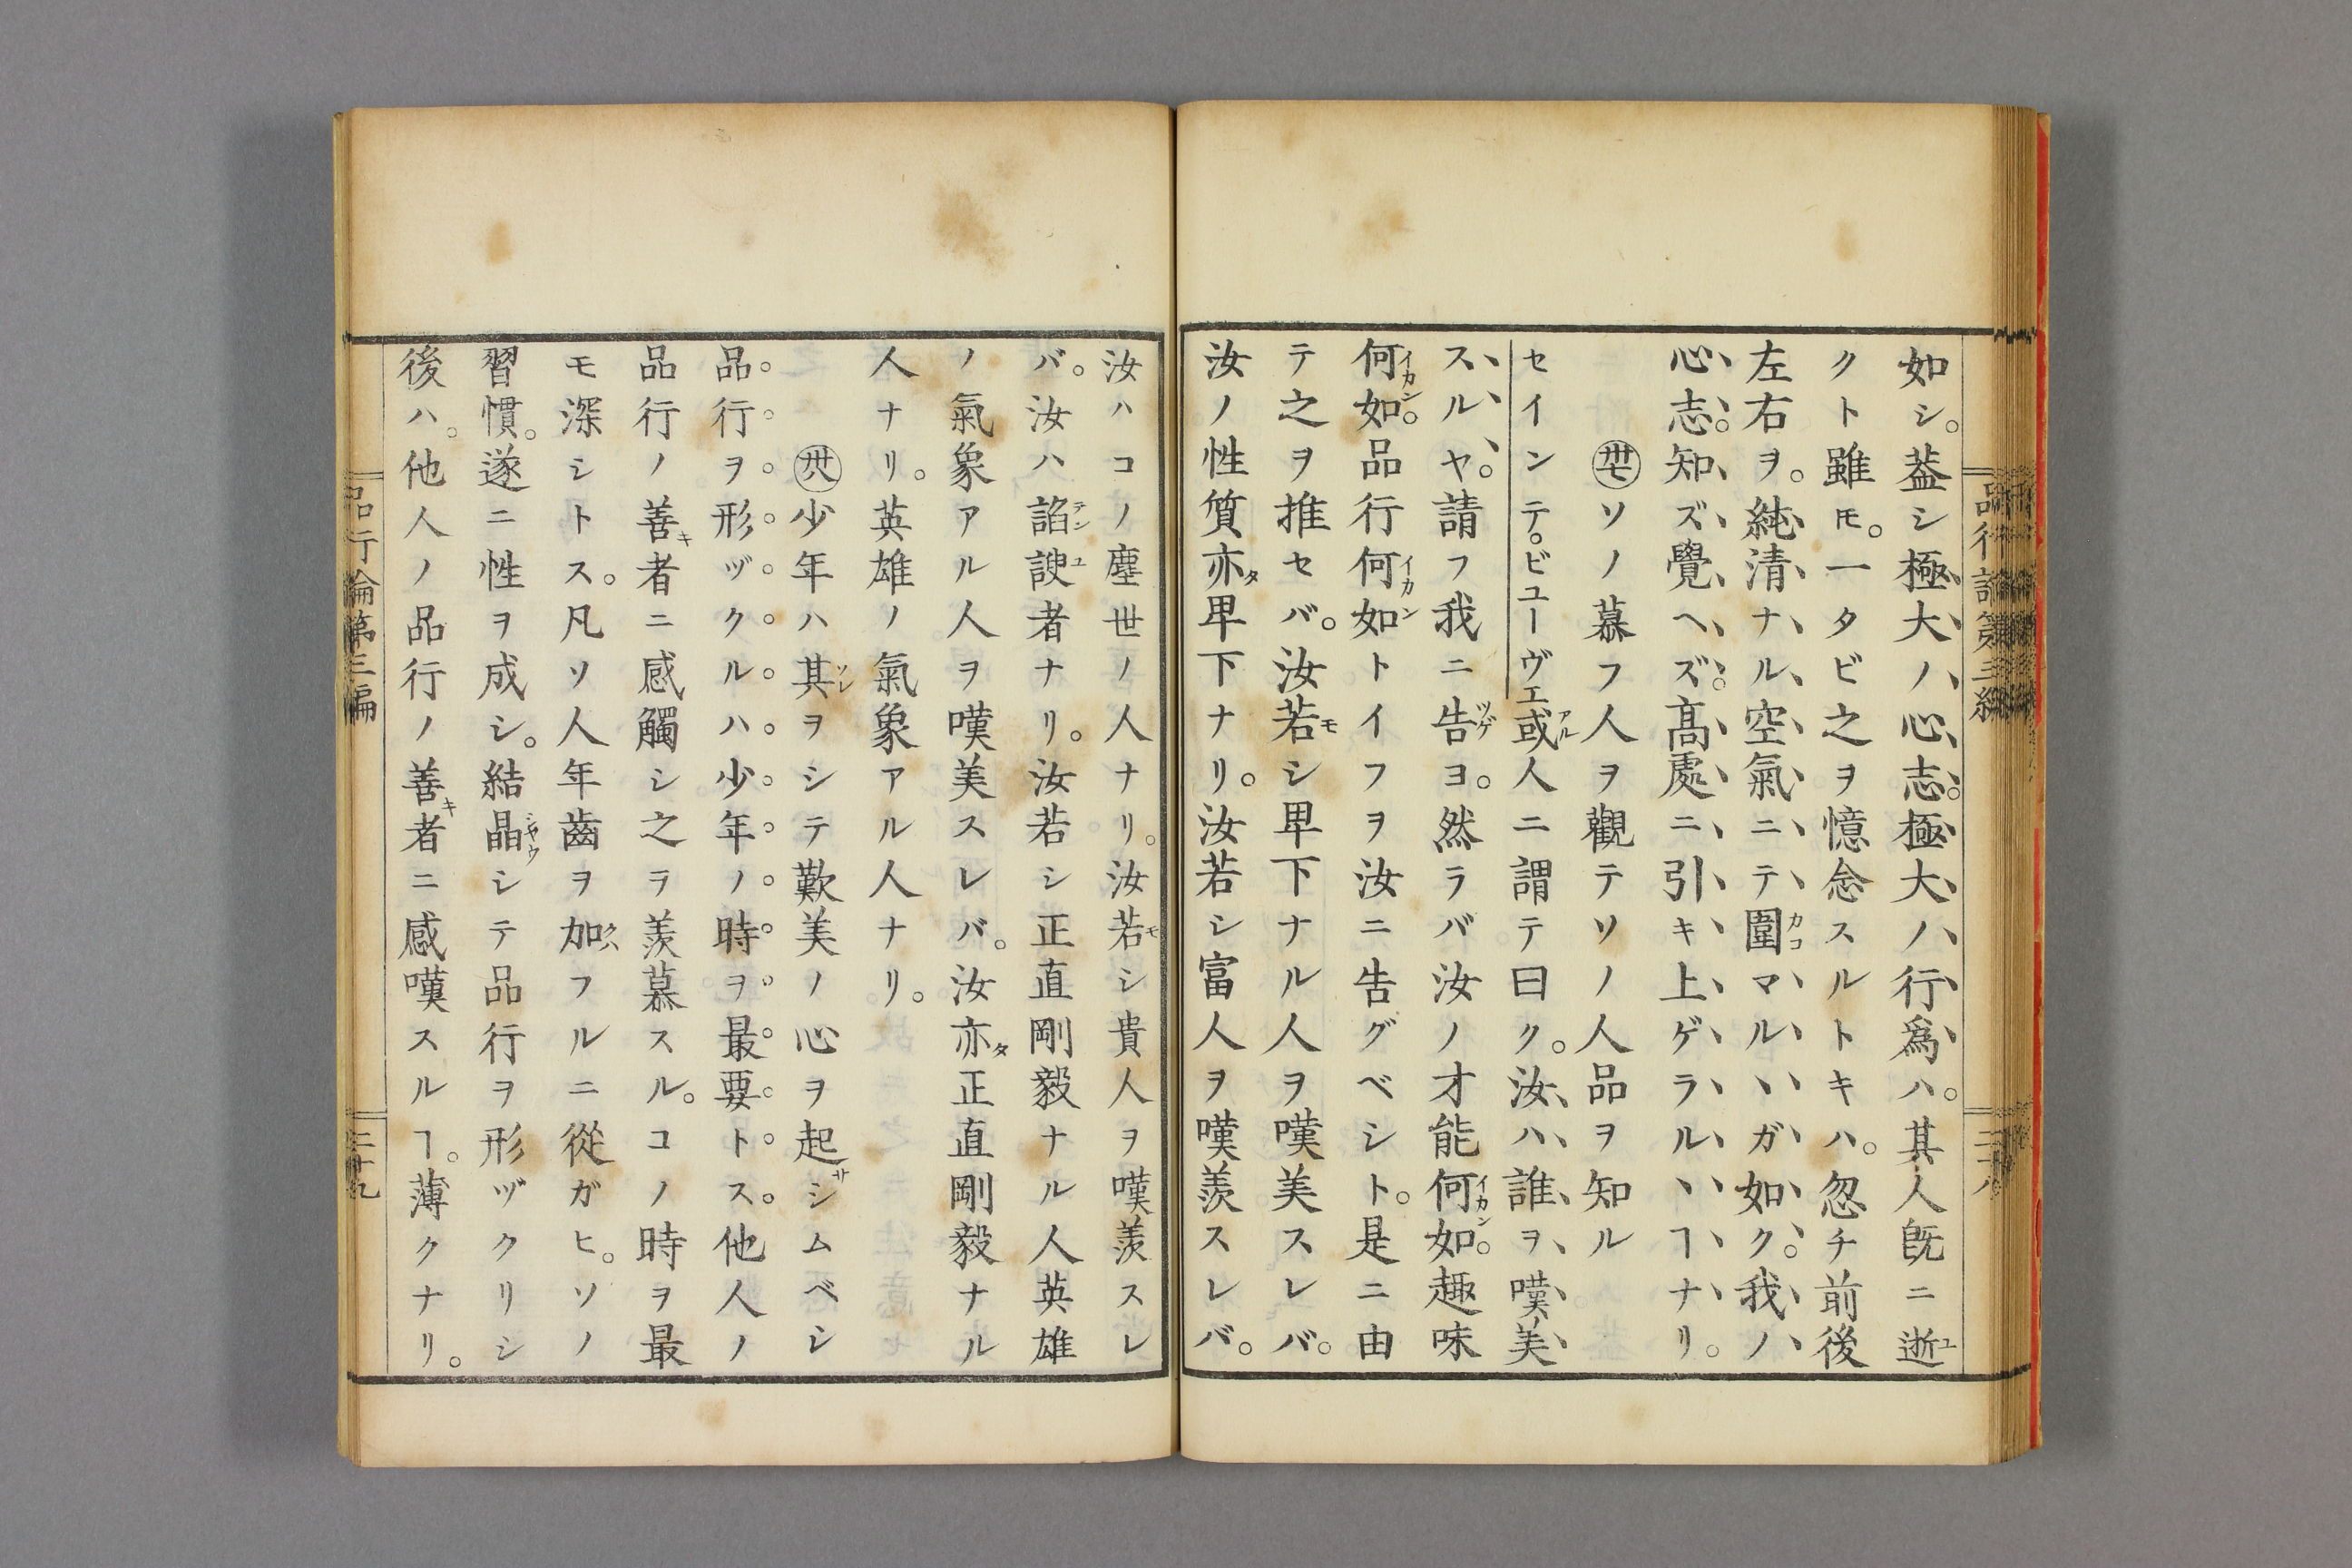 如シ。葢シ極大ノ心志。極大ノ行爲ハ。其人既ニ逝
クト雖𪜈。一タビ之ヲ憶念スルトキハ。忽チ前後
左右ヲ。純清ナル空氣ニテ圍マルヽガ如ク。我ノ
心志。知ズ覺ヘズ。髙處ニ引キ上ゲラルヽヿナリ。
㊲ソノ慕フ人ヲ觀テソノ人品ヲ知ル
セインテ。ビユーヴエ或人ニ謂テ曰ク。汝ハ誰ヲ嘆美
スルヤ。請フ我ニ告ヨ。然ラバ汝ノ才能何如。趣味
何如。品行何如トイフヲ汝ニ告グベシト。是ニ由
テ之ヲ推セバ。汝若シ卑下ナル人ヲ嘆美スレバ。
汝ノ性質亦卑下ナリ。汝若シ富人ヲ嘆羨スレバ。
汝ハコノ塵世ノ人ナリ。汝若シ貴人ヲ嘆羨スレ
バ。汝ハ諂諛者ナリ。汝若シ正直剛毅ナル人英雄
ノ氣象アル人ヲ嘆美スレバ。汝亦正直剛毅ナル
人ナリ。英雄ノ氣象アル人ナリ。
㊳少年ハ其ヲシテ歎美ノ心ヲ起シムベシ
品行ヲ形ヅクルハ少年ノ時ヲ最要トス。他人ノ
品行ノ善者ニ感觸シ之ヲ羨慕スル。コノ時ヲ最
モ深シトス。凡ソ人年齒ヲ加フルニ從ガヒ。ソノ
習慣。遂ニ性ヲ成シ。結晶シテ品行ヲ形ヅクリシ
後ハ。他人ノ品行ノ善者ニ感嘆スルヿ。薄クナリ。
品行論第三編
二十九